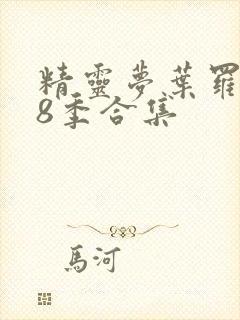 精靈夢葉羅
8季合集
馬河